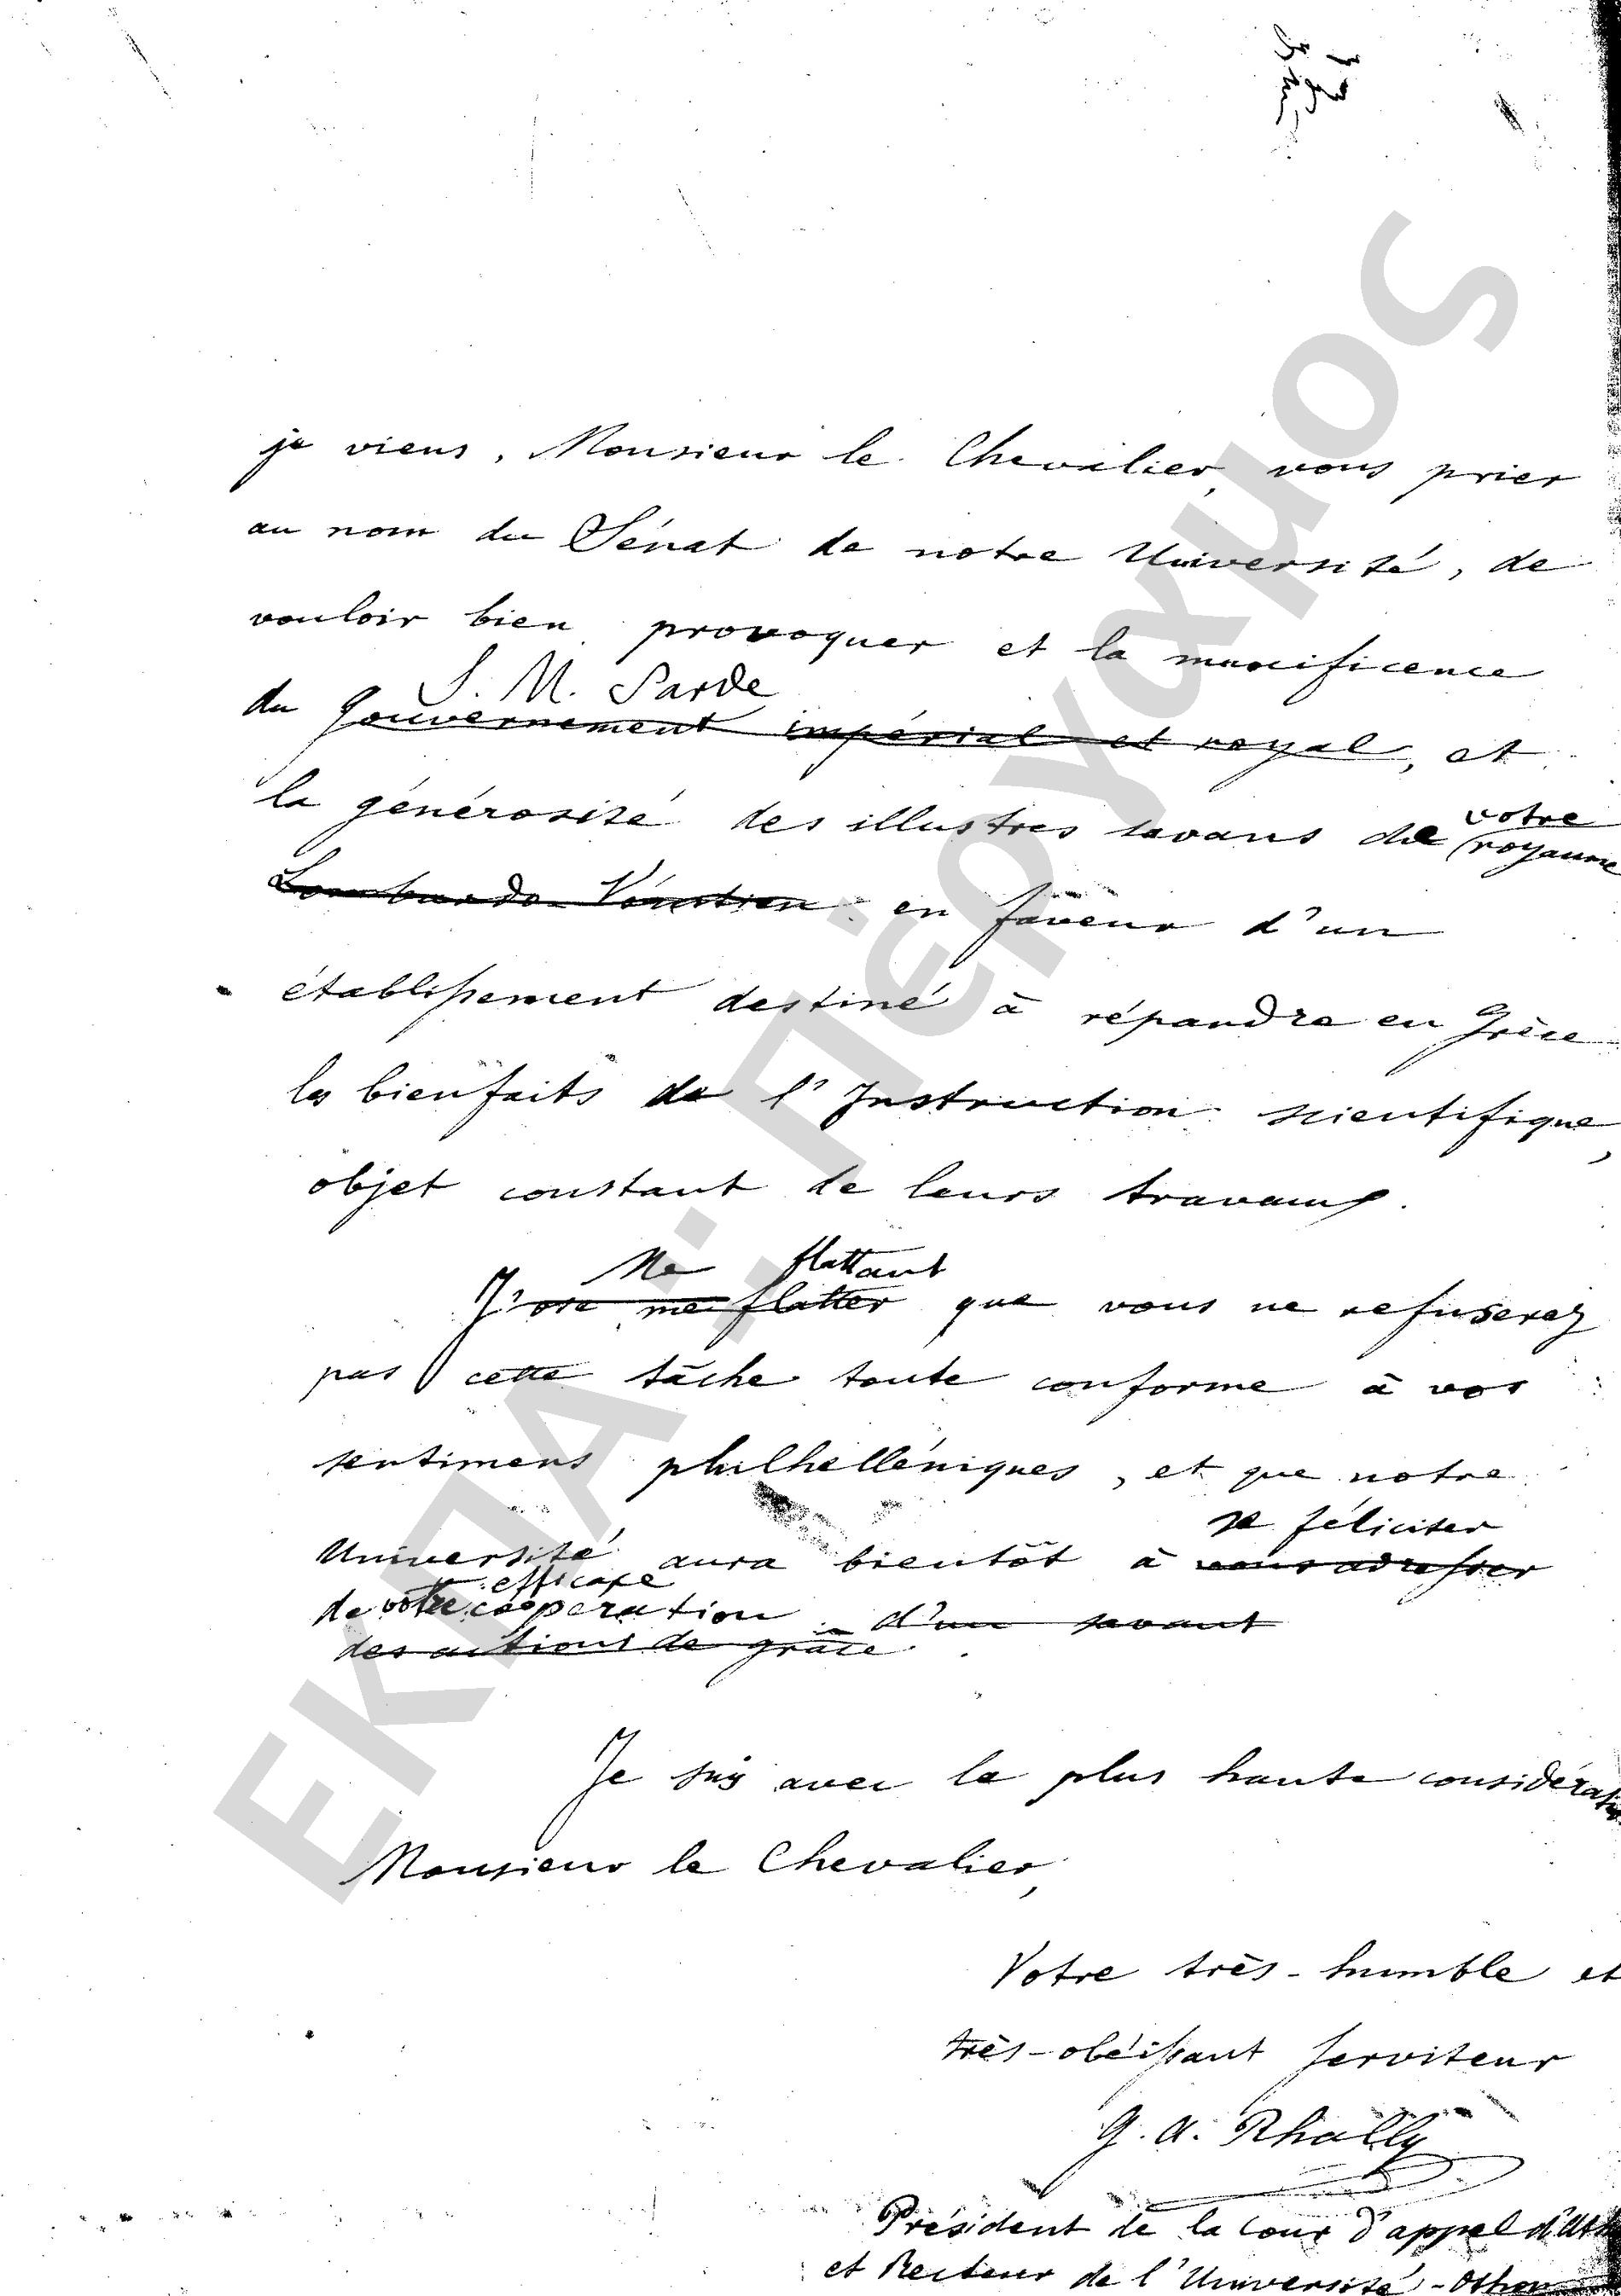 je viens, Monsieur le Chevalier, vous prier
au nom du Sénat de notre Université, de
vouloir bien provoquer et la munificence
S. M. Sarde
du Gouvernement impérial et royal, et
la générosité des illustres savans de votre royaume
Lombardo Vénitien en faveur d'un
établissement destiné à répandre en Grèce
les bienfaits de l'Instruction scientifique,
objet constant de leurs travaux.
Me flattant
J'ose me flatter que vous ne refuserez
pas cette tâche toute conforme à vos
sentimens philhelléniques, et que notre
se féliciter
Université aura bientôt à vous adresser
efficace
de votre coopération d'un savant
des actions de grâce.
Je suis avec la plus haute considération
Monsieur le Chevalier,
Votre très-humble et
très-obéissant serviteur
G. A. Rhally
Président de la Cour d'appel d'Ath
et Recteur de l'Université-Othon
ΕΚΠΑ: Πέργαμος